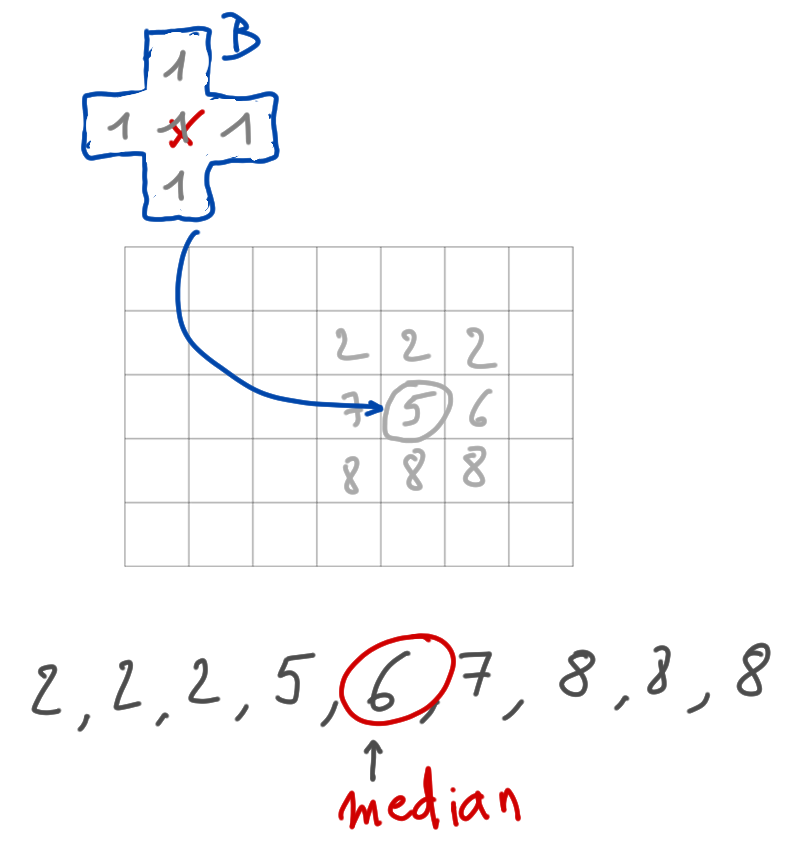 B
1
1 1 1
1
2 2 2
7 5 6
8 8 8
2, 2, 2, 5, 6, 7, 8, 8, 8
↑
median